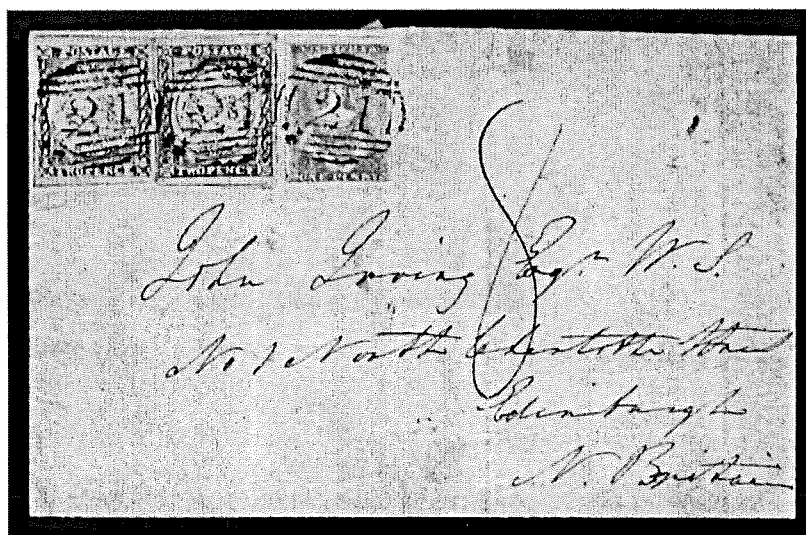 POSTAGE POSTAGE
21 21 21
TWOPENCE TWOPENCE ONE PENNY
8
John Irving Esqr. W. S.
No 1 North Charlotte Street
Edinburgh
N. Britain